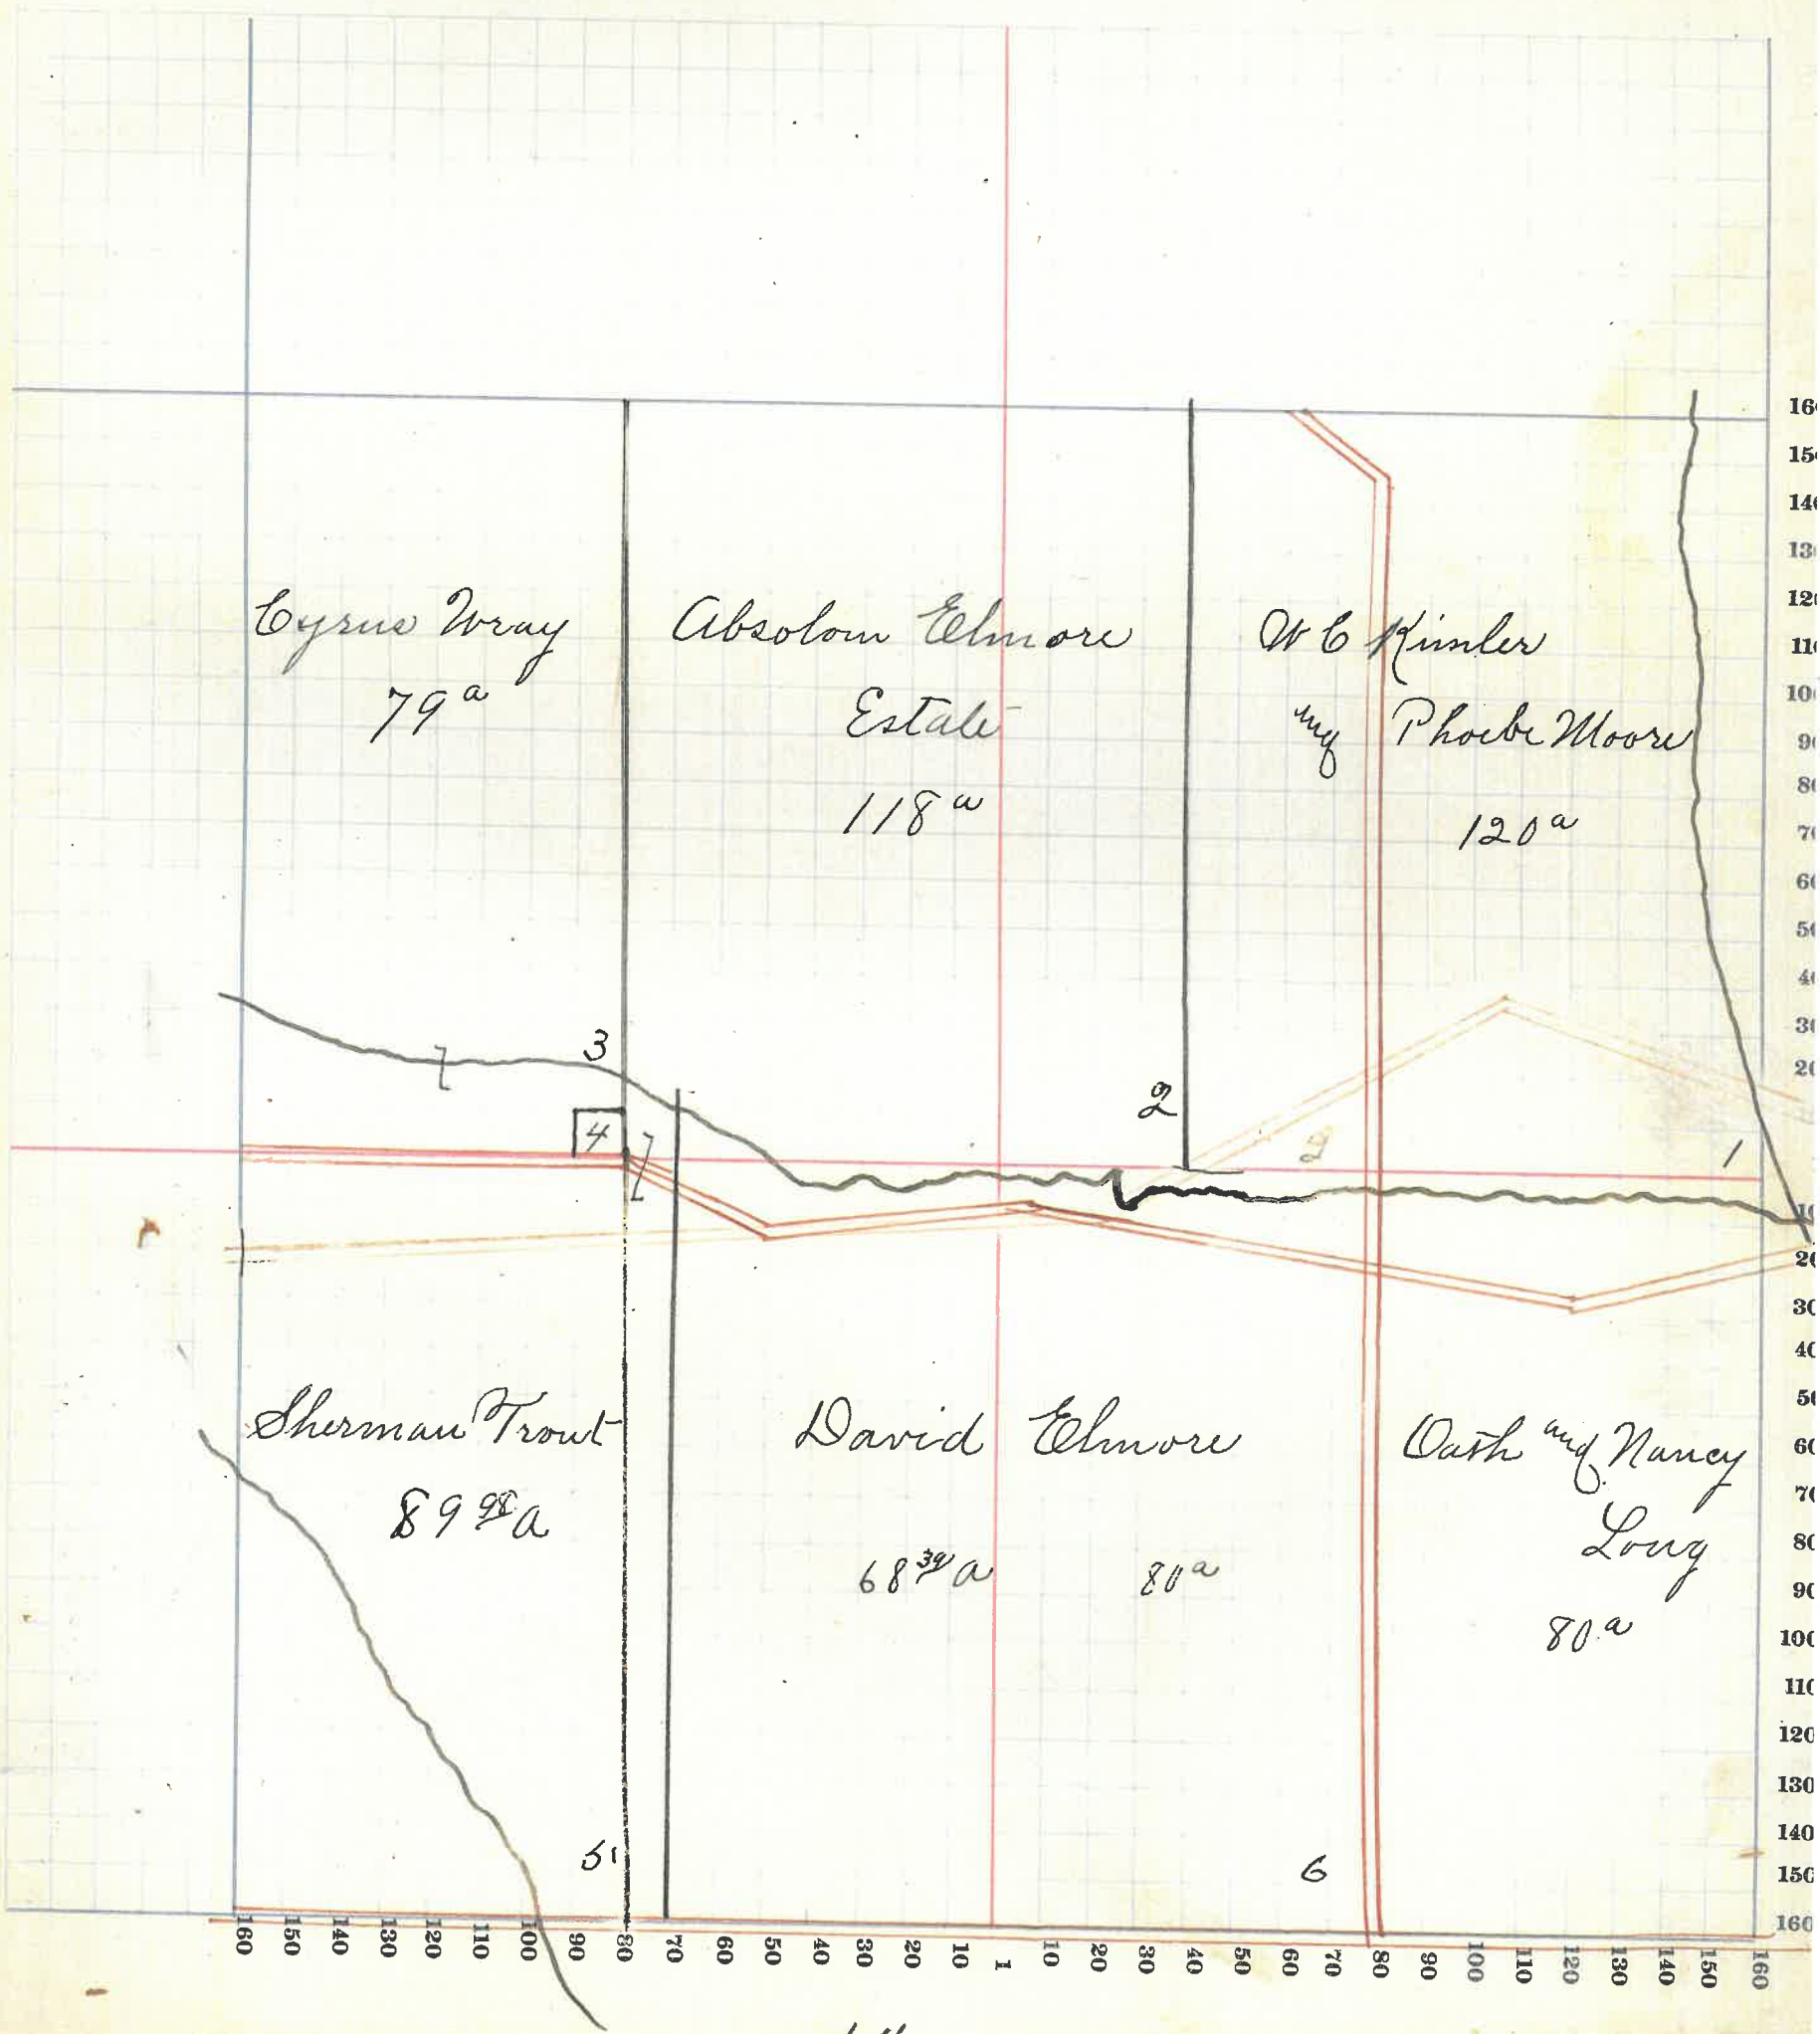 Cyrus Wray
79 a
Absolom Elmore
Estate
118 a
W C Kimler
and Phoebe Moore
120 a
3
4
2
2
1
Sherman Trout
89 98 a
David Elmore
68 39 a
80 a
Oath and Nancy
Long
80 a
5
6
160 150 140 130 120 110 100 90 80 70 60 50 40 30 20 10 1 10 20 30 40 50 60 70 80 90 100 110 120 130 140 150 160
16
15
14
13
12
11
10
90
80
70
60
50
40
30
20
10
20
30
40
50
60
70
80
90
100
110
120
130
140
150
160